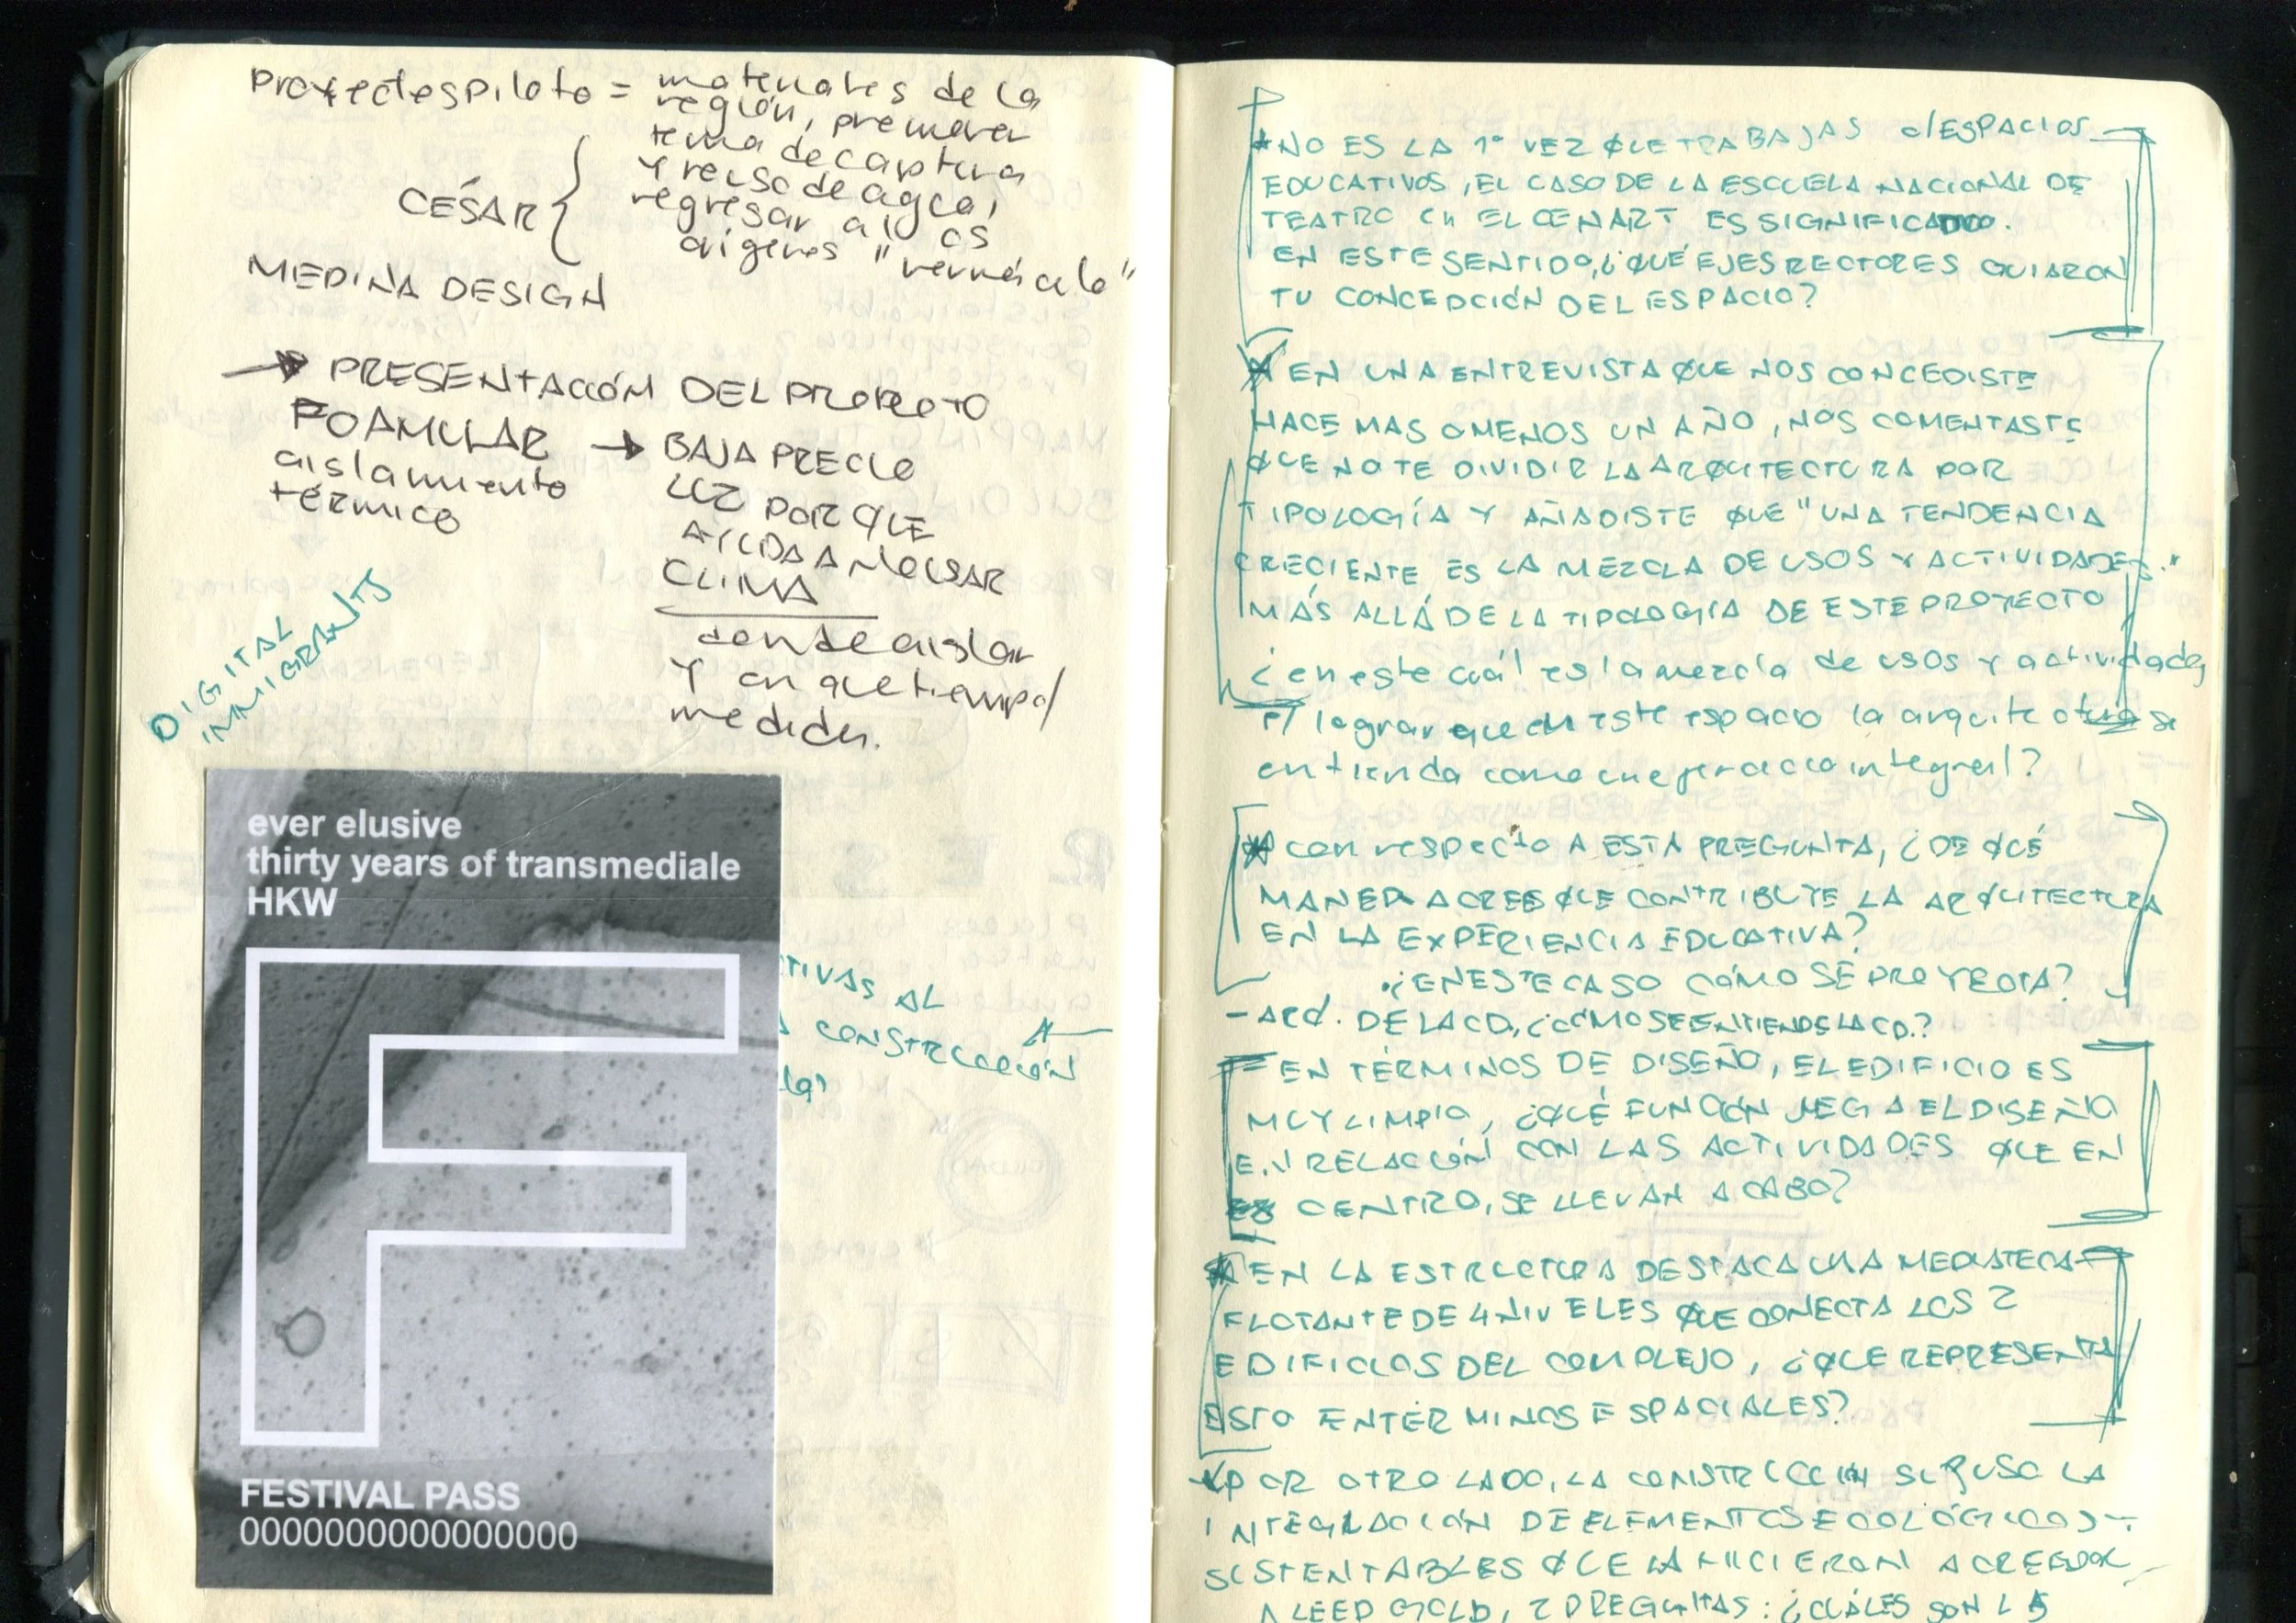 Proyectos piloto = materiales de la
región, promover
tema de captura
y reuso de agua,
regresar a los
orígenes "vernáculo"
CÉSAR
MEDINA DESIGN
→ PRESENTACIÓN DEL PROYECTO
FOAMULAR → BAJA PRECIO
aislamiento
térmico
LUZ PORQUE
AYUDA A NO USAR
CLIMA
donde aislar
y en que tiempo/
medida.
DIGITAL
INMIGRANTS
ever elusive
thirty years of transmediale
HKW
F
TIVAS AL
CONSTRUCCIÓN
FESTIVAL PASS
0000000000000000
*NO ES LA 1º VEZ QUE TRABAJAS c/ESPACIOS
EDUCATIVOS, EL CASO DE LA ESCUELA NACIONAL DE
TEATRO en EL CENART ES SIGNIFICADO.
EN ESTE SENTIDO, ¿QUÉ EJES RECTORES GUIARON
TU CONCEPCIÓN DEL ESPACIO?
* EN UNA ENTREVISTA QUE NOS CONCEDISTE
HACE MAS O MENOS UN AÑO, NOS COMENTASTE
QUE NO TE DIVIDIR LA ARQUITECTURA POR
TIPOLOGÍA Y AÑADISTE QUE "UNA TENDENCIA
CRECIENTE ES LA MEZCLA DE USOS Y ACTIVIDADES."
MÁS ALLÁ DE LA TIPOLOGÍA DE ESTE PROYECTO
¿en este cuál es la mezcla de usos y actividades
p/ lograr que en este espacio la arquitectura se
entienda como integral?
* con respecto A ESTA PREGUNTA, ¿DE QUÉ
MANERA CREES QUE CONTRIBUYE LA ARQUITECTURA
EN LA EXPERIENCIA EDUCATIVA?
¿EN ESTE CASO CÓMO SE PROYECTA?
- ACÁ. DE LA CD, ¿CÓMO SE ENTIENDE LA CD.?
EN TÉRMINOS DE DISEÑO, EL EDIFICIO ES
MUY LIMPIO, ¿QUÉ FUNCIÓN JUEGA EL DISEÑO
EN RELACIÓN CON LAS ACTIVIDADES QUE EN
CENTRO, SE LLEVAN A CABO?
* EN LA ESTRUCTURA DESTACA UNA MEDIATECA
FLOTANTE DE 4 NIVELES QUE CONECTA LOS 2
EDIFICIOS DEL COMPLEJO, ¿QUE REPRESENTA
ESTO EN TÉRMINOS ESPACIALES?
*POR OTRO LADO, LA CONSTRUCCIÓN SUPUSO LA
INTEGRACIÓN DE ELEMENTOS ECOLÓGICOS Y
SUSTENTABLES QUE LA HICIERON ACREEDOR
A LEED GOLD, 2 PREGUNTAS: ¿CUÁLES SON LAS